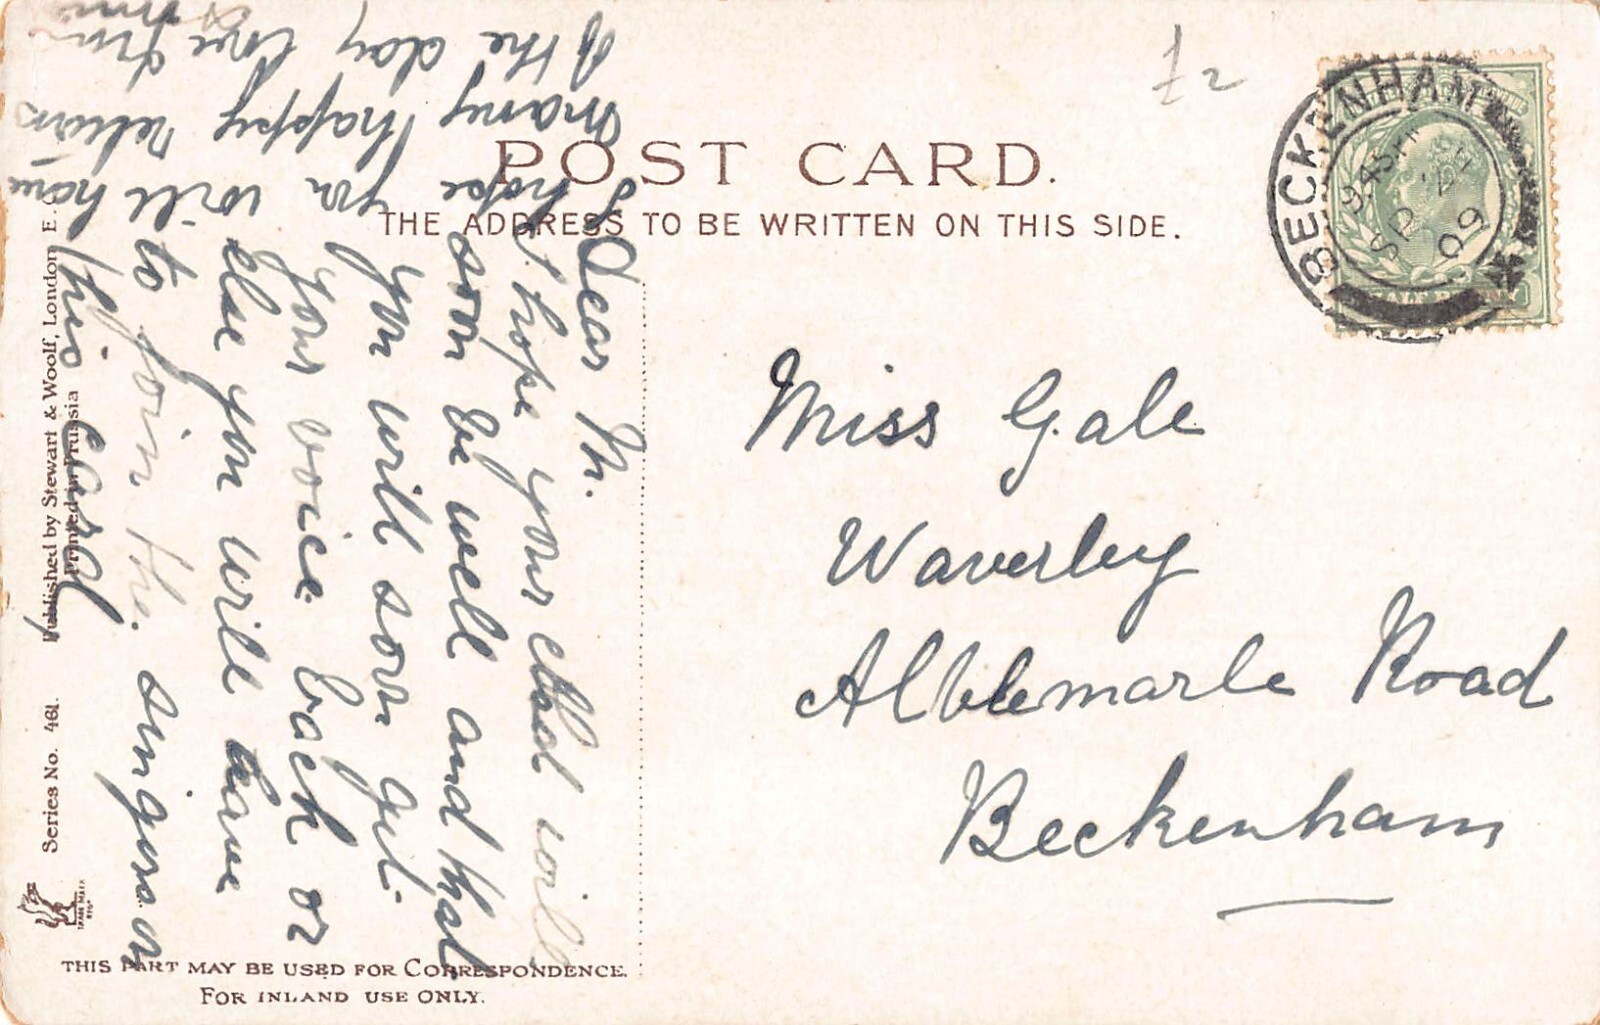 POST CARD.
THE ADDRESS TO BE WRITTEN ON THIS SIDE.
BECKENHAM
SP
09
HALF PENNY
Miss Gale
Waverley
Albemarle Road
Beckenham
Dear M.
I hope your cold will
soon be well and that
you will soon get
your voice back or
else you will have
to join the singers on
this card
I hope
you will have
many happy returns
of the day love from
Series No. 461.
Published by Stewart & Woolf, London E.C.
Printed in Prussia
TRADE MARK
THIS PART MAY BE USED FOR CORRESPONDENCE.
FOR INLAND USE ONLY.